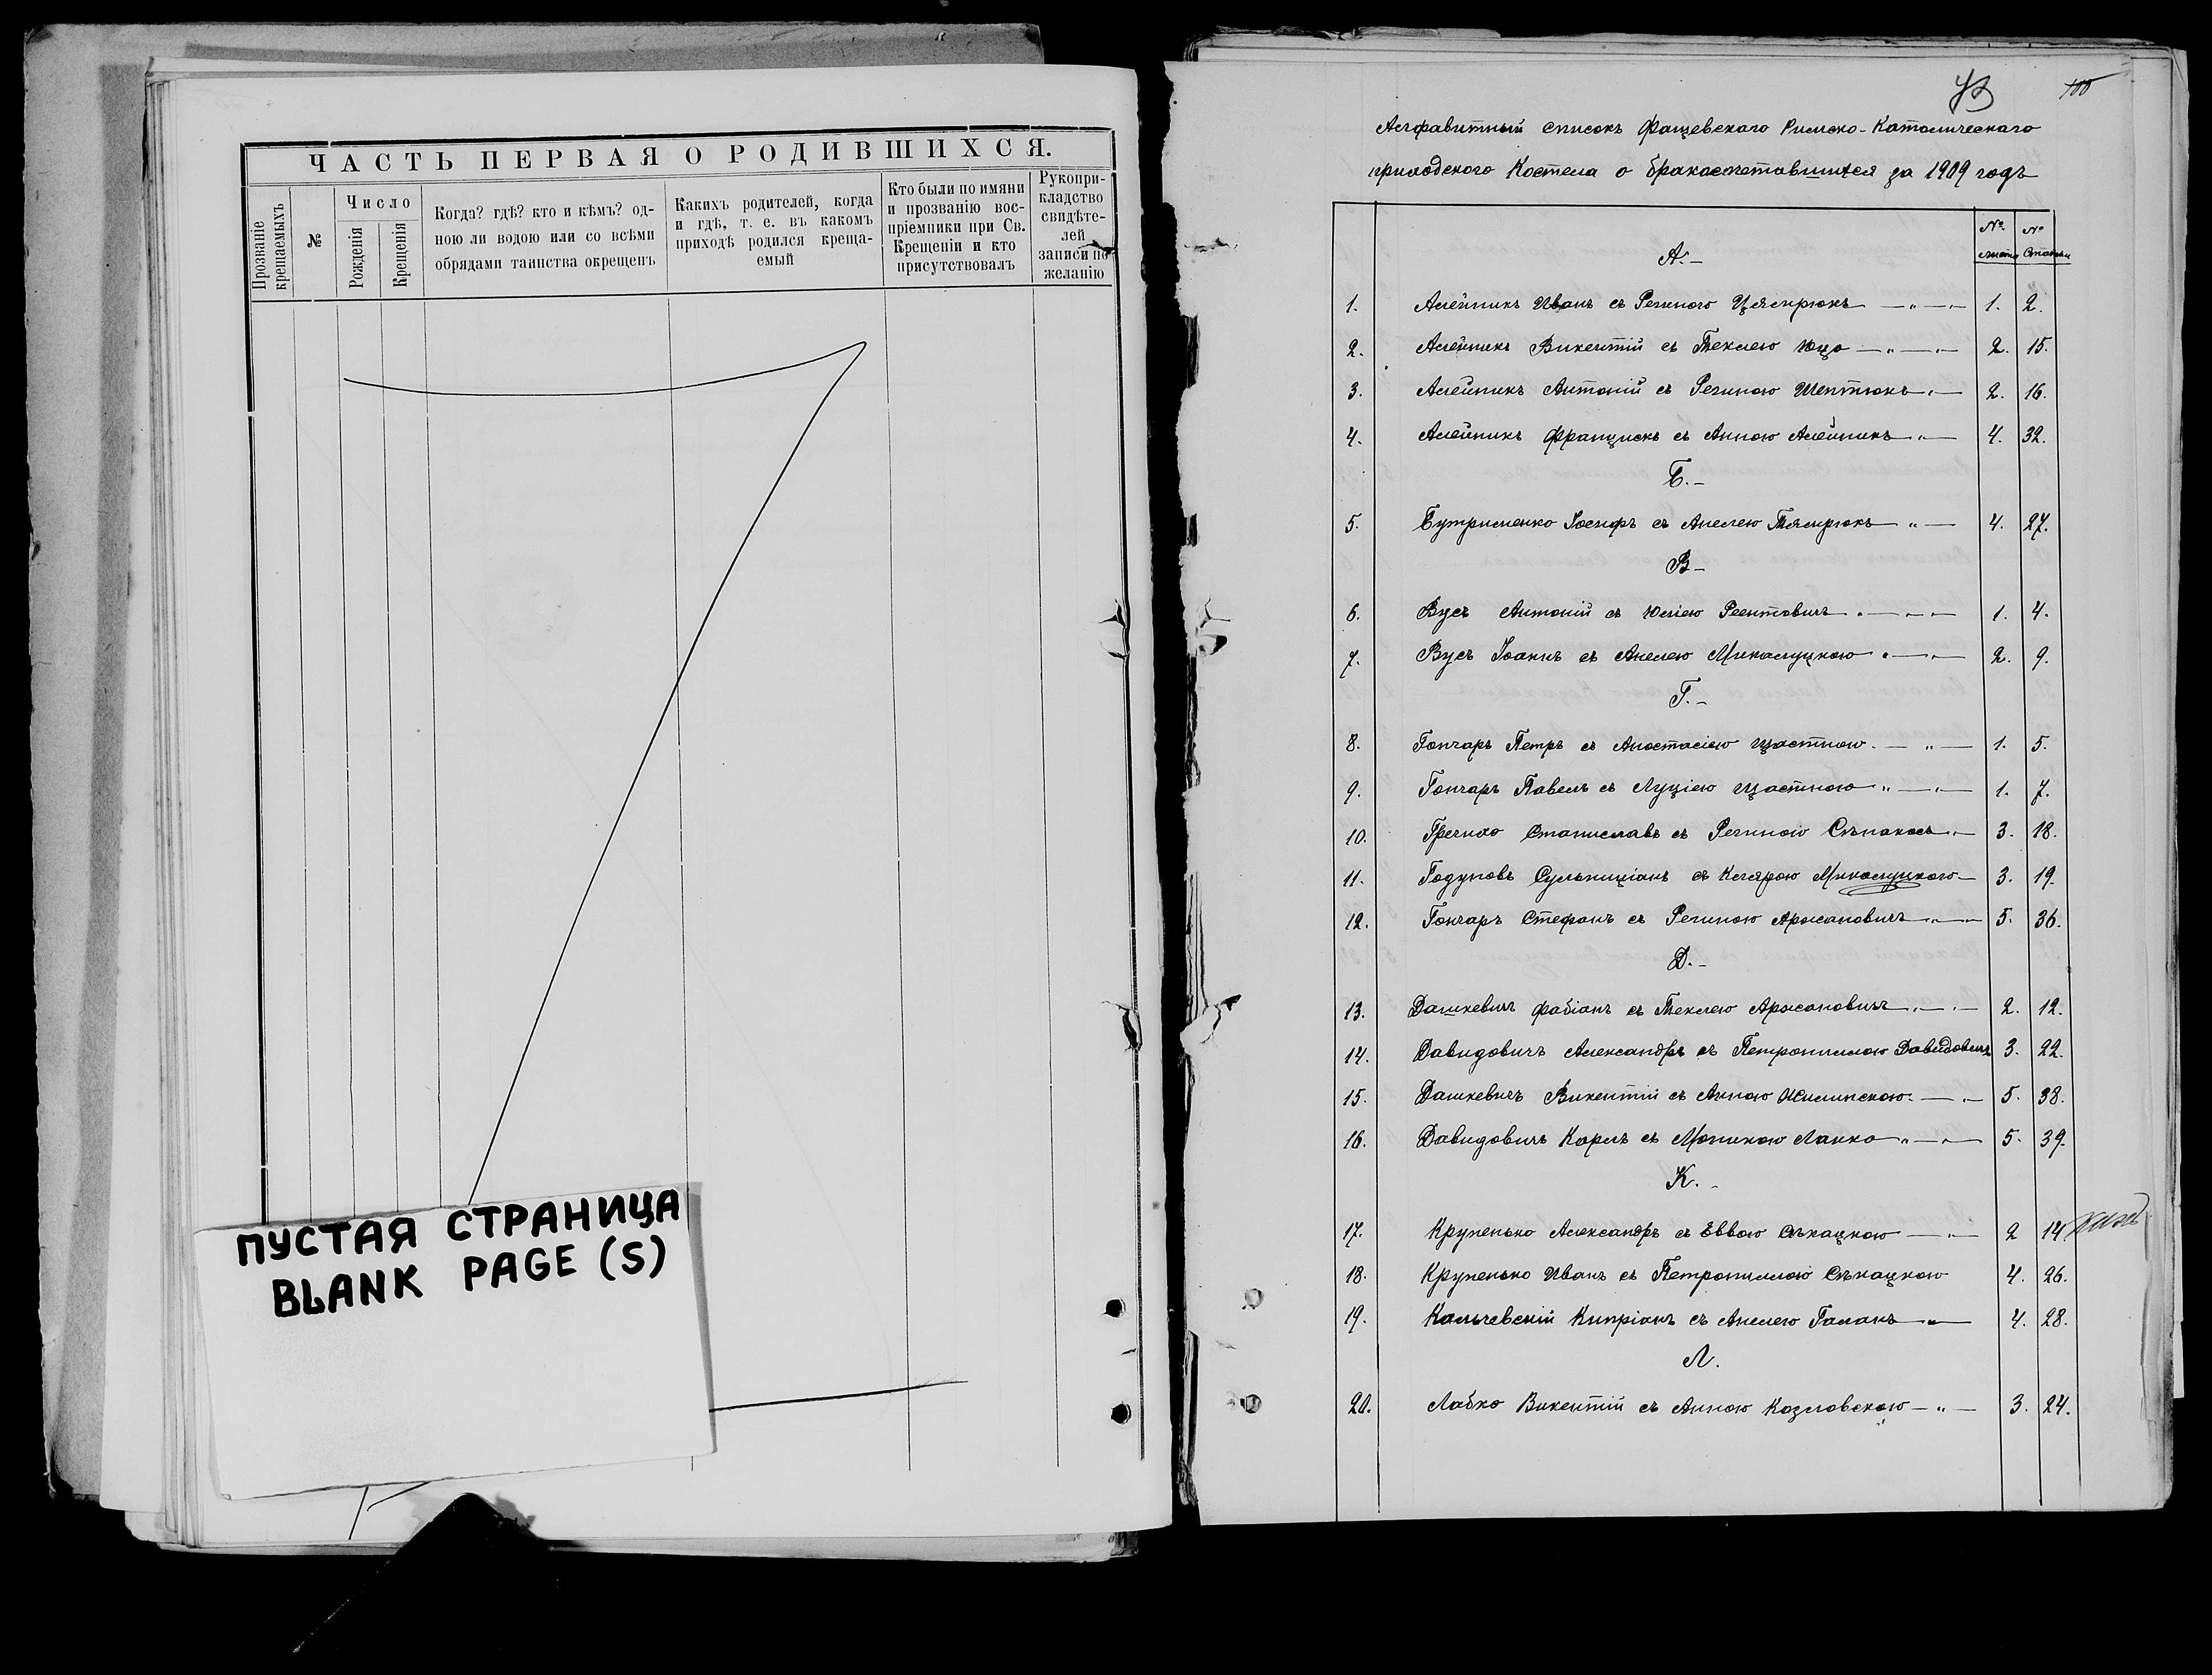 ЧАСТЬ ПЕРВАЯ О РОДИВШИХСЯ.
Прозваніе крещаемыхъ
№
Число
Рожденія
Крещенія
Когда? гдѣ? кто и кѣмъ? од-
ною ли водою или со всѣми
обрядами таинства окрещенъ
Какихъ родителей, когда
и гдѣ, т. е. въ какомъ
приходѣ родился креща-
емый
Кто были по имяни
и прозванію вос-
пріемники при Св.
Крещеніи и кто
присутствовалъ
Рукопри-
кладство
свидѣте-
лей
записи по
желанію
ПУСТАЯ СТРАНИЦА
BLANK PAGE (S)
100
Алфавитный списокъ Фащевскаго Римско-Католическаго
приходскаго Костела о бракосочетавшихся за 1909 годъ
№ листа № Статьи
А.-
1. Алейникъ Иванъ съ Региною Цямрюкъ 1. 2.
2. Алейникъ Викентій съ Теклею Юцо 2. 15.
3. Алейникъ Антоній съ Региною Шептюкъ 2. 16.
4. Алейникъ Францискъ съ Анною Алейникъ 4. 32.
Б.-
5. Бутрименко Іосифъ съ Анелею Тямрюкъ 4. 27.
В-
6. Вусъ Антоній съ Юліею Реентовичъ 1. 4.
7. Вусъ Іоаннъ съ Анелею Микалуцкою 2. 9.
Г.-
8. Гончаръ Петръ съ Анастасіею Щастною 1. 5.
9. Гончаръ Павелъ съ Луціею Щастною 1. 7.
10. Гречихо Станиславъ съ Региною 3. 18.
11. Годуновъ Сульпиціанъ съ Клярою Микалуцкою 3. 19.
12. Гончаръ Стефанъ съ Региною Аржановичъ 5. 36.
Д.-
13. Дашкевичъ Фабіанъ съ Теклею Аржановичъ 2. 12.
14. Давидовичъ Александръ съ Петронилою Давидовичъ 3. 22.
15. Дашкевичъ Викентій съ Анною Жилинскою 5. 38.
16. Давидовичъ Карлъ съ Моникою Лакко 5. 39.
К.-
17. Крупенько Александръ съ Еввою Сѣкацкою 2 14
18. Крупенько Иванъ съ Петронилою Сѣкацкою 4. 26.
19. Кальчевскій Кипріанъ съ Анелею Галакъ 4. 28.
Л.
20. Лабко Викентій съ Анною Козловскою 3. 24.